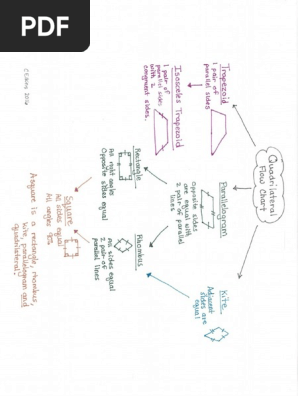 PDF
Quadrilateral
Flow Chart
Trapezoid
1 pair of
parallel sides
Isosceles Trapezoid
1 pair of
parallel sides
with 2
congruent sides.
Parallelogram
Opposite sides
are equal with
2 pair of parallel
lines
Kite
Adjacent
sides are
equal
Rectangle
All right angles
Opposite sides equal
Rhombus
All sides equal
2 pair of
parallel lines
Square
All sides equal
All angles 90°
A square is a rectangle, rhombus,
kite, parallelogram and
quadrilateral.